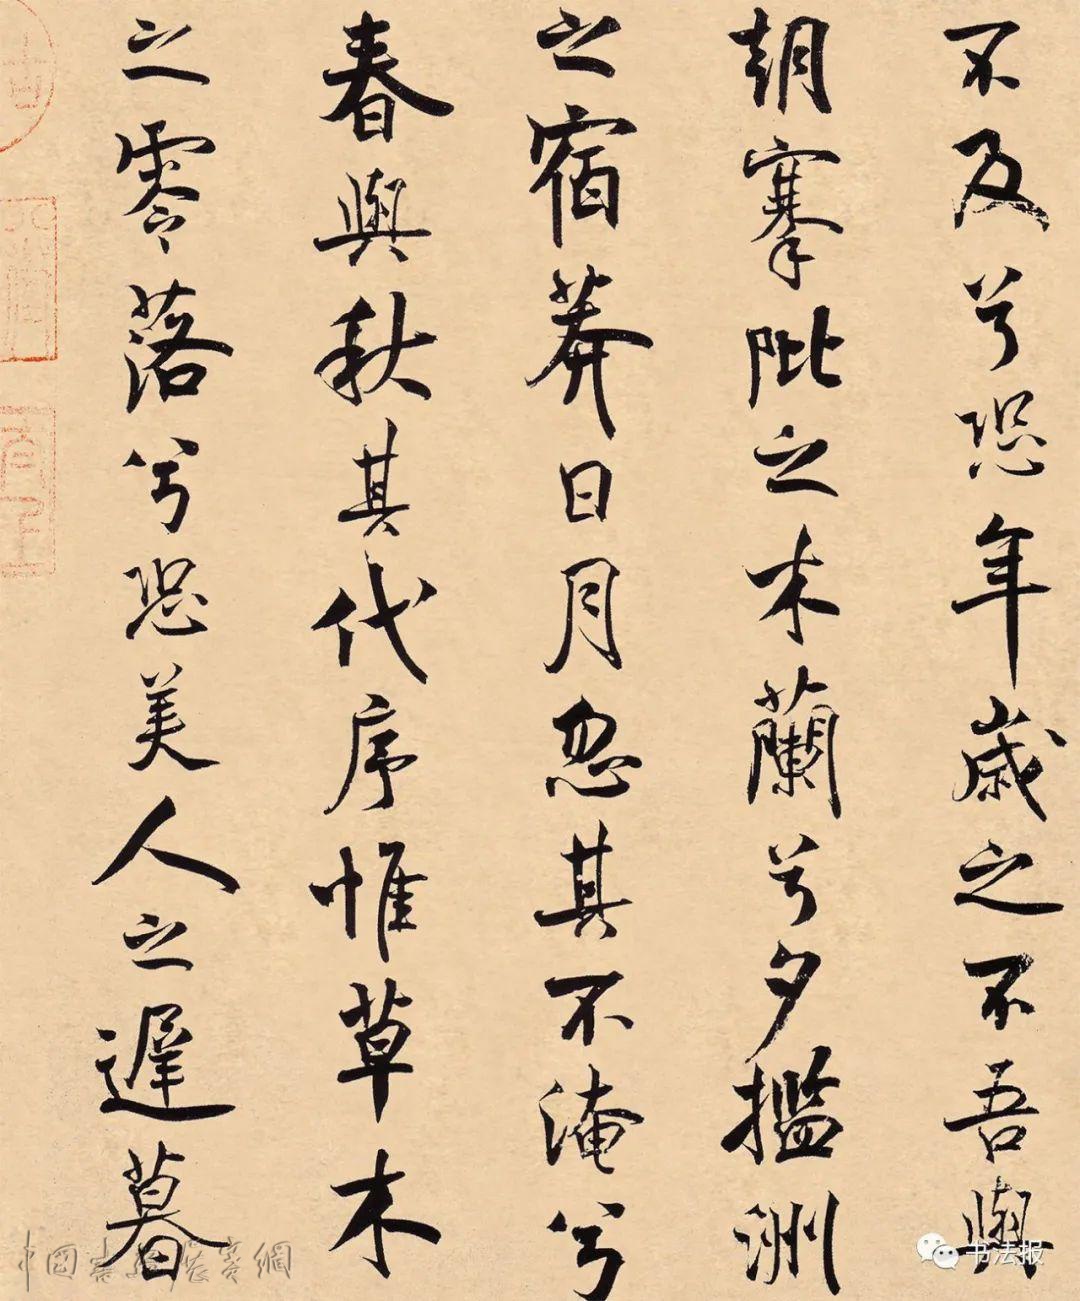 不及兮恐年歲之不吾與
朝搴阰之木蘭兮夕㩜洲
之宿莽日月忽其不淹兮
春與秋其代序惟草木
之零落兮恐美人之遲暮
中國書畫展賽網
书法报